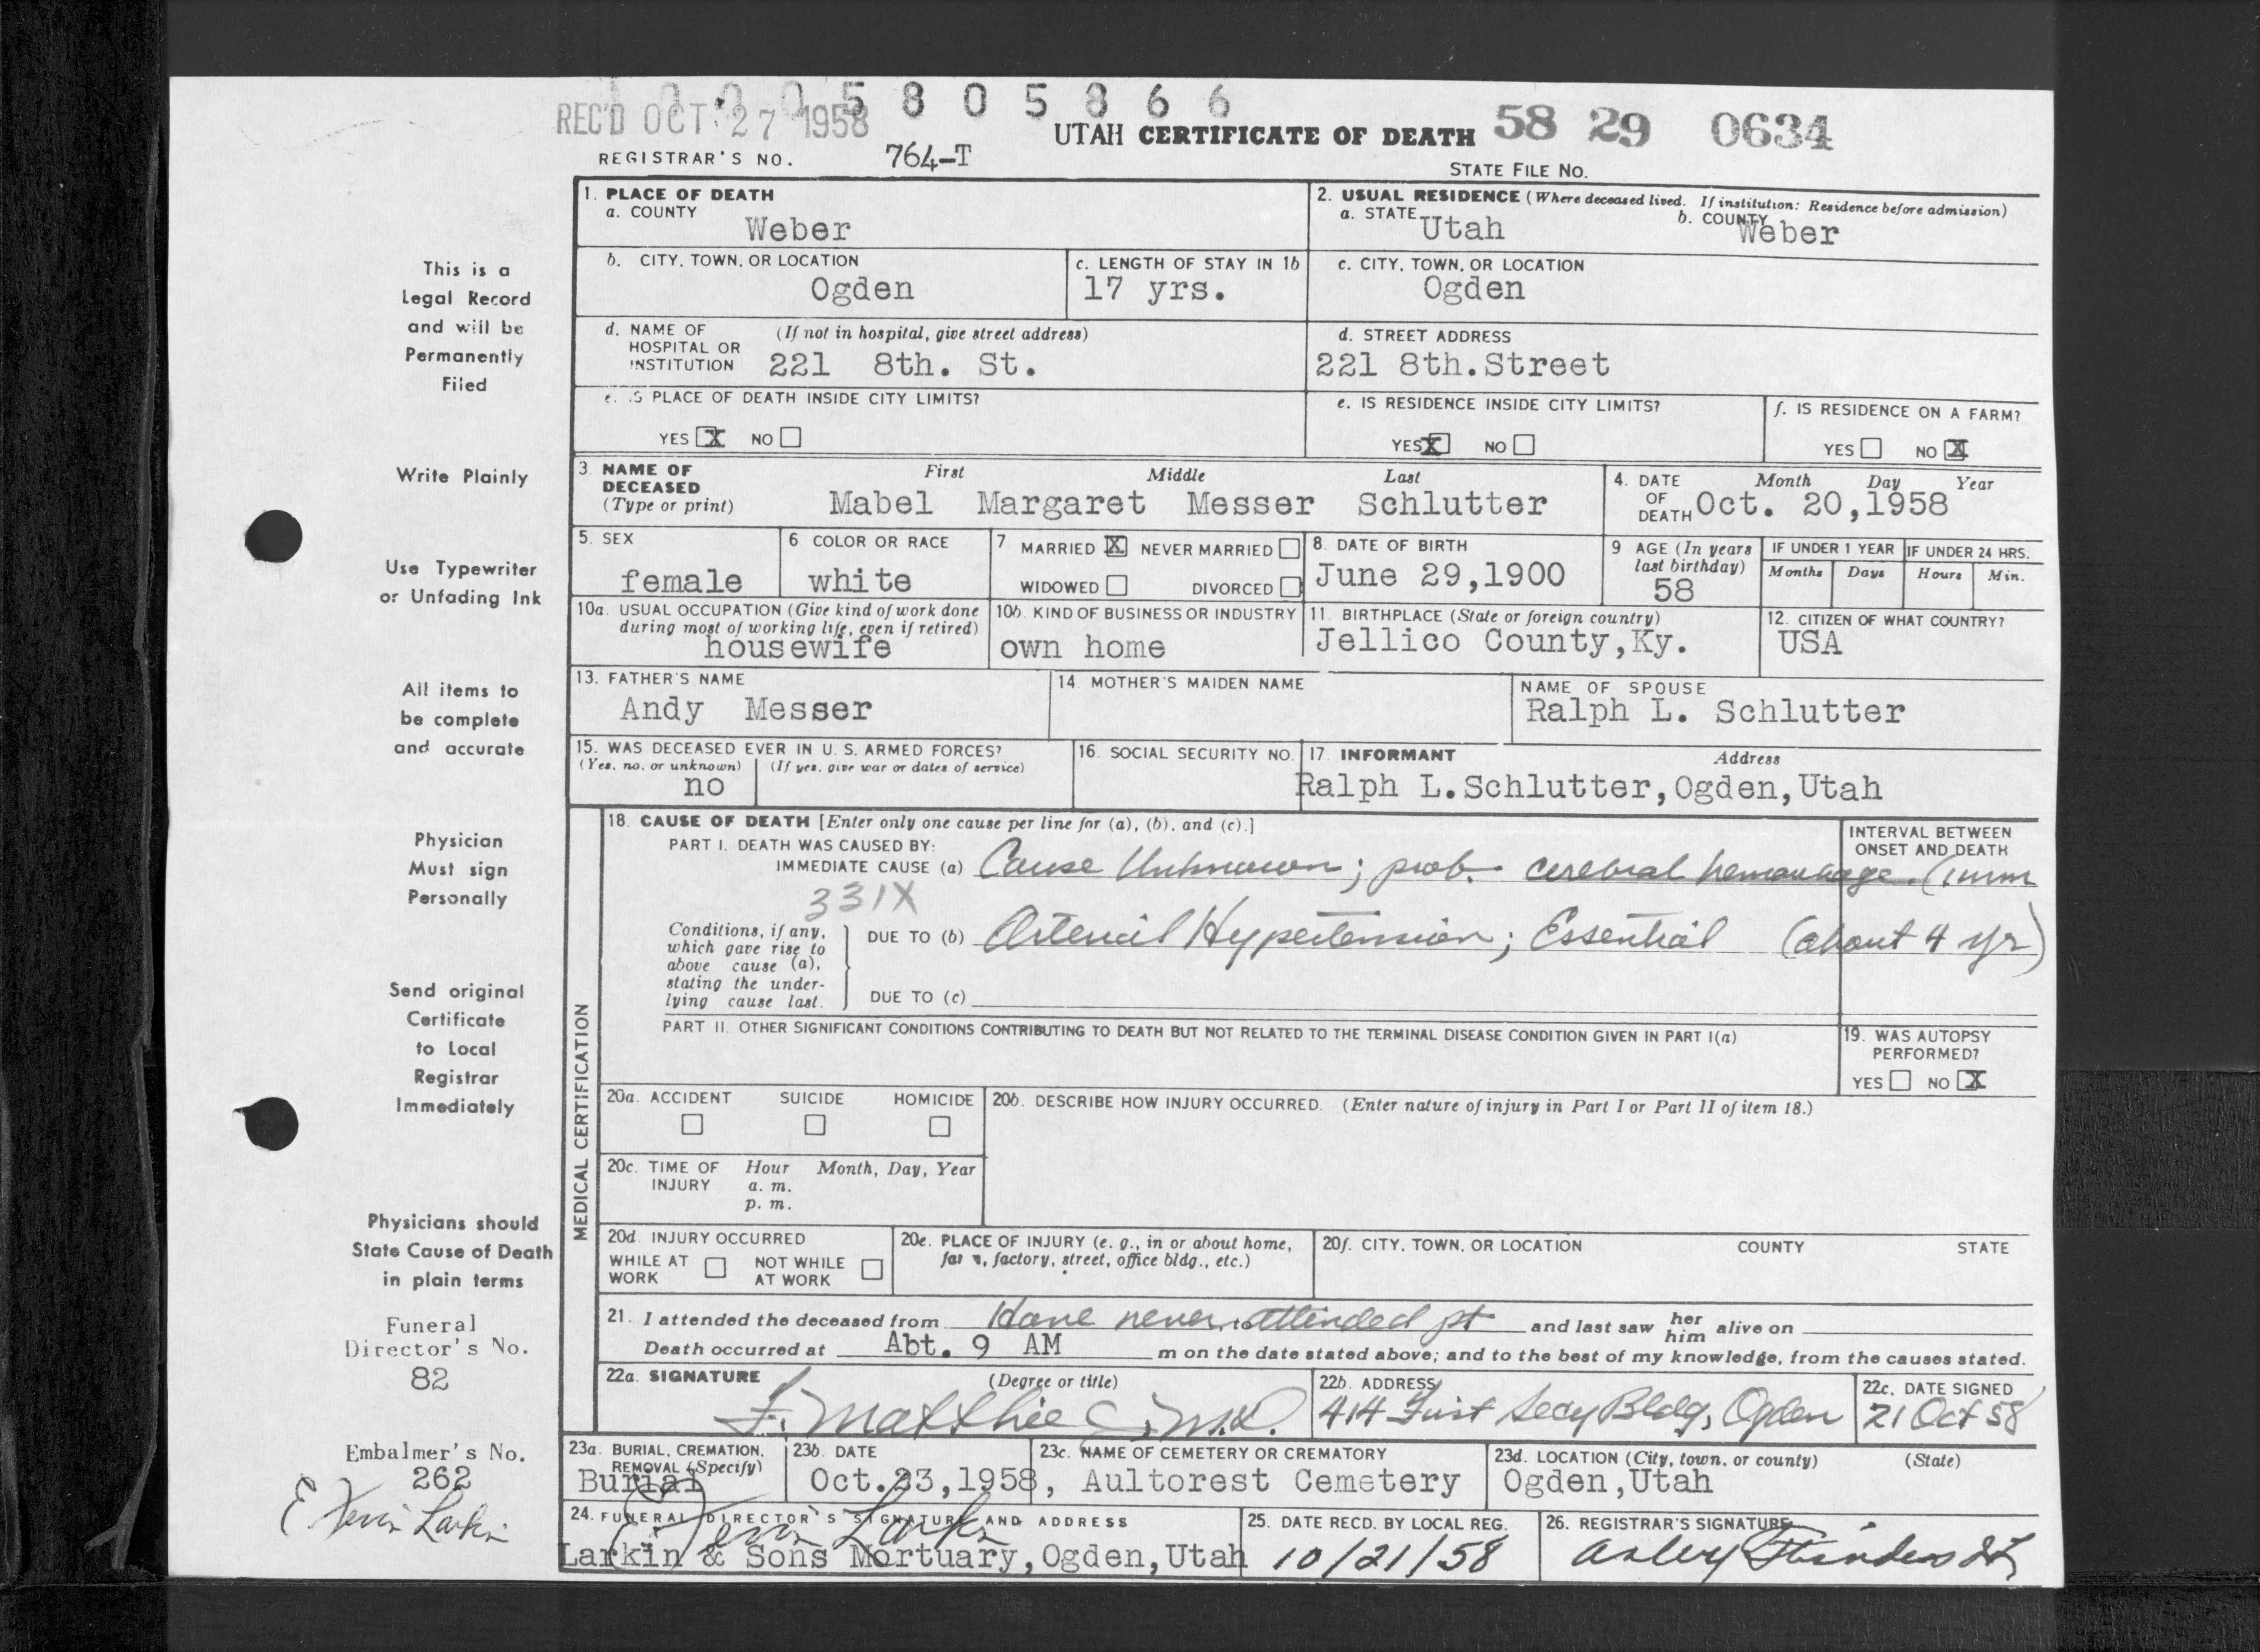 REC'D OCT 27 1958 5 8 0 5 8 6 6
UTAH CERTIFICATE OF DEATH 58 29 0634
REGISTRAR'S NO. 764-T
STATE FILE NO.
This is a
Legal Record
and will be
Permanently
Filed
Write Plainly
Use Typewriter
or Unfading Ink
All items to
be complete
and accurate
Physician
Must sign
Personally
Send original
Certificate
to Local
Registrar
Immediately
Physicians should
State Cause of Death
in plain terms
Funeral
Director's No.
82
Embalmer's No.
262
E Larkin
1. PLACE OF DEATH
a. COUNTY Weber
b. CITY, TOWN, OR LOCATION
Ogden
c. LENGTH OF STAY IN 1b
17 yrs.
d. NAME OF (If not in hospital, give street address)
HOSPITAL OR
INSTITUTION 221 8th. St.
e. IS PLACE OF DEATH INSIDE CITY LIMITS?
YES X NO
2. USUAL RESIDENCE (Where deceased lived. If institution: Residence before admission)
a. STATE Utah b. COUNTY Weber
c. CITY, TOWN, OR LOCATION
Ogden
d. STREET ADDRESS
221 8th.Street
e. IS RESIDENCE INSIDE CITY LIMITS?
YES X NO
f. IS RESIDENCE ON A FARM?
YES NO X
3. NAME OF DECEASED (Type or print)
First Middle Last
Mabel Margaret Messer Schlutter
4. DATE OF DEATH Month Day Year
Oct. 20,1958
5. SEX
female
6 COLOR OR RACE
white
7 MARRIED X NEVER MARRIED
WIDOWED DIVORCED
8. DATE OF BIRTH
June 29,1900
9 AGE (In years last birthday)
58
IF UNDER 1 YEAR IF UNDER 24 HRS.
Months Days Hours Min.
10a. USUAL OCCUPATION (Give kind of work done
during most of working life, even if retired)
housewife
10b. KIND OF BUSINESS OR INDUSTRY
own home
11. BIRTHPLACE (State or foreign country)
Jellico County,Ky.
12. CITIZEN OF WHAT COUNTRY?
USA
13. FATHER'S NAME
Andy Messer
14. MOTHER'S MAIDEN NAME
NAME OF SPOUSE
Ralph L. Schlutter
15. WAS DECEASED EVER IN U. S. ARMED FORCES?
(Yes, no, or unknown) (If yes, give war or dates of service)
no
16. SOCIAL SECURITY NO.
17. INFORMANT Address
Ralph L.Schlutter,Ogden,Utah
MEDICAL CERTIFICATION
18. CAUSE OF DEATH [Enter only one cause per line for (a), (b), and (c).]
INTERVAL BETWEEN
ONSET AND DEATH
PART I. DEATH WAS CAUSED BY:
IMMEDIATE CAUSE (a) Cause Unknown; prob. cerebral hemorrhage.
331X
Conditions, if any,
which gave rise to
above cause (a),
stating the under-
lying cause last.
DUE TO (b) Arterial Hypertension; Essential (about 4 yr)
DUE TO (c)
PART II. OTHER SIGNIFICANT CONDITIONS CONTRIBUTING TO DEATH BUT NOT RELATED TO THE TERMINAL DISEASE CONDITION GIVEN IN PART I(a)
19. WAS AUTOPSY
PERFORMED?
YES NO X
20a. ACCIDENT SUICIDE HOMICIDE
20b. DESCRIBE HOW INJURY OCCURRED. (Enter nature of injury in Part I or Part II of item 18.)
20c. TIME OF INJURY Hour Month, Day, Year
a. m.
p. m.
20d. INJURY OCCURRED
WHILE AT WORK NOT WHILE AT WORK
20e. PLACE OF INJURY (e. g., in or about home,
farm, factory, street, office bldg., etc.)
20f. CITY, TOWN, OR LOCATION COUNTY STATE
21. I attended the deceased from Have never attended pt and last saw her him alive on
Death occurred at Abt. 9 AM m on the date stated above; and to the best of my knowledge, from the causes stated.
22a. SIGNATURE (Degree or title)
F. Matthie M.D.
22b. ADDRESS
414 First Secy Bldg, Ogden
22c. DATE SIGNED
21 Oct 58
23a. BURIAL, CREMATION,
REMOVAL (Specify)
Burial
23b. DATE
Oct.23,1958,
23c. NAME OF CEMETERY OR CREMATORY
Aultorest Cemetery
23d. LOCATION (City, town, or county) (State)
Ogden,Utah
24. FUNERAL DIRECTOR'S SIGNATURE AND ADDRESS
Larkin
Larkin & Sons Mortuary,Ogden,Utah
25. DATE RECD. BY LOCAL REG.
10/21/58
26. REGISTRAR'S SIGNATURE